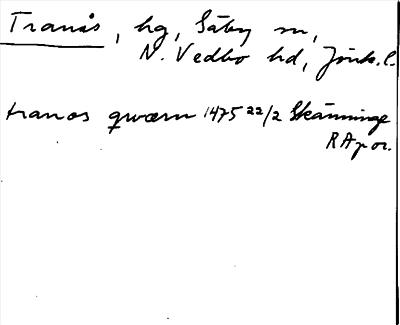 Tranås, hg, Säby sn,
N. Vedbo hd, Jönk. l.
tranos qwærn 1475 22/2 Skänninge
RAp or.